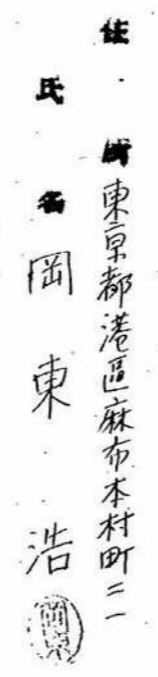 住所 東京都港區麻布本村町二一
氏名 岡東 浩